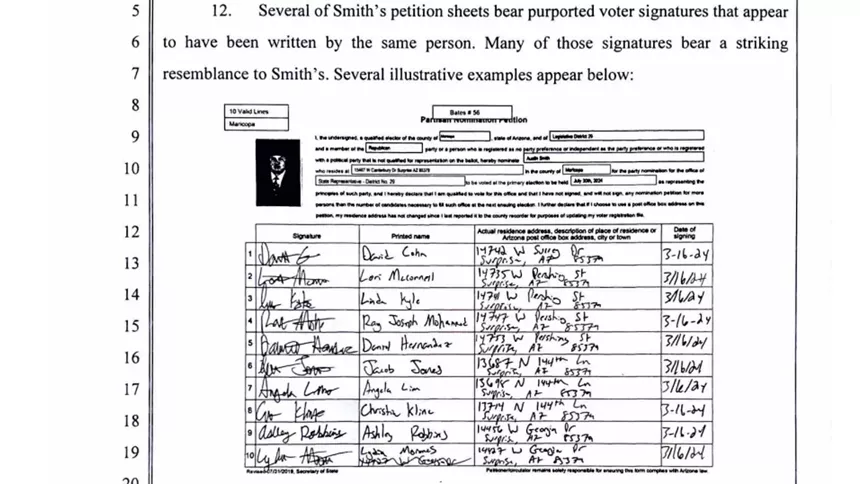 5 12. Several of Smith's petition sheets bear purported voter signatures that appear
6 to have been written by the same person. Many of those signatures bear a striking
7 resemblance to Smith's. Several illustrative examples appear below:
8
9
10
11
12
13
14
15
16
17
18
19
10 Valid Lines
Maricopa
Bates # 56
Partisan Nomination Petition
I, the undersigned, a qualified elector of the county of Maricopa, state of Arizona, and of Legislative District 29
and a member of the Republican party or a person who is registered as no party preference or independent as the party preference or who is registered
with a political party that is not qualified for representation on the ballot, hereby nominate Austin Smith
who resides at W Canterbury Dr Surprise AZ 85379 in the county of Maricopa for the party nomination for the office of
State Representative - District No. 29 to be voted at the primary election to be held July 30th, 2024 as representing the
principles of such party, and I hereby declare that I am qualified to vote for this office and that I have not signed, and will not sign, any nomination petition for more
persons than the number of candidates necessary to fill such office at the next ensuing election. I further declare that if I choose to use a post office box address on this
petition, my residence address has not changed since I last reported it to the county recorder for purposes of updating my voter registration file.
Signature Printed name Actual residence address, description of place of residence or Arizona post office box address, city or town Date of signing
1 David Cohn 14742 W Dr Surprise, AZ 85379 3-16-24
2 Lori McConnel 14735 W Pershing St Surprise, AZ 85379 3/16/24
3 Linda Kyle 14741 W Pershing St Surprise, AZ 85379 3/16/24
4 Ray Joseph Mohammed 14747 W Pershing St Surprise, AZ 85379 3-16-24
5 Daniel Hernandez 14753 W Pershing St Surprise, AZ 85379 3/16/24
6 Jacob Jones 13687 N 144th Ln Surprise, AZ 85379 3/16/24
7 Angela Lim 13698 N 144th Ln Surprise, AZ 85379 3/16/24
8 Christa Kline 13714 N 144th Ln Surprise, AZ 85379 3-16-24
9 Ashley Robbins Ashley Robbins 14456 W Georgia Dr Surprise, AZ 85379 3-16-24
10 Lydia 14427 W Georgia Dr Surprise, AZ 85379 3/16/24
Revised 07/31/2019, Secretary of State Petitioner/circulator remains solely responsible for ensuring this form complies with Arizona law.